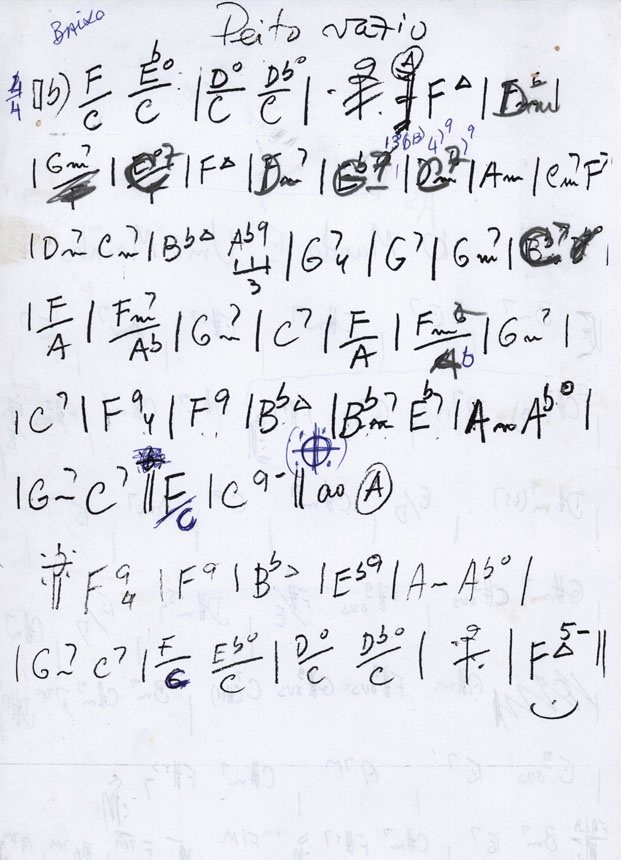 BAIXO
Peito vazio
4/4 (1b) F/C Eb°/C | D°/C Db°/C | 2 (A) | F△ | Dm6 |
| Gm7 | | F△ | Dm7 | Eb7 | Dm7 | Am | Cm7 F7 |
| Dm7 Cm7 | Bb△ Ab9 3 | G74 | G7 | Gm7 | Bb7 |
| F/A | Fm7/Ab | Gm7 | C7 | F/A | Fm6/Ab | Gm7 |
| C7 | F94 | F9 | Bb△ | Bbm7 Eb7 | Am Ab° |
| Gm7 C7 || F/C | C9- || ao (A)
|| F94 | F9 | Bb△ | Eb9 | Am Ab° |
| Gm7 C7 | F/C Eb°/C | D°/C Db°/C | 2 | F△5- ||